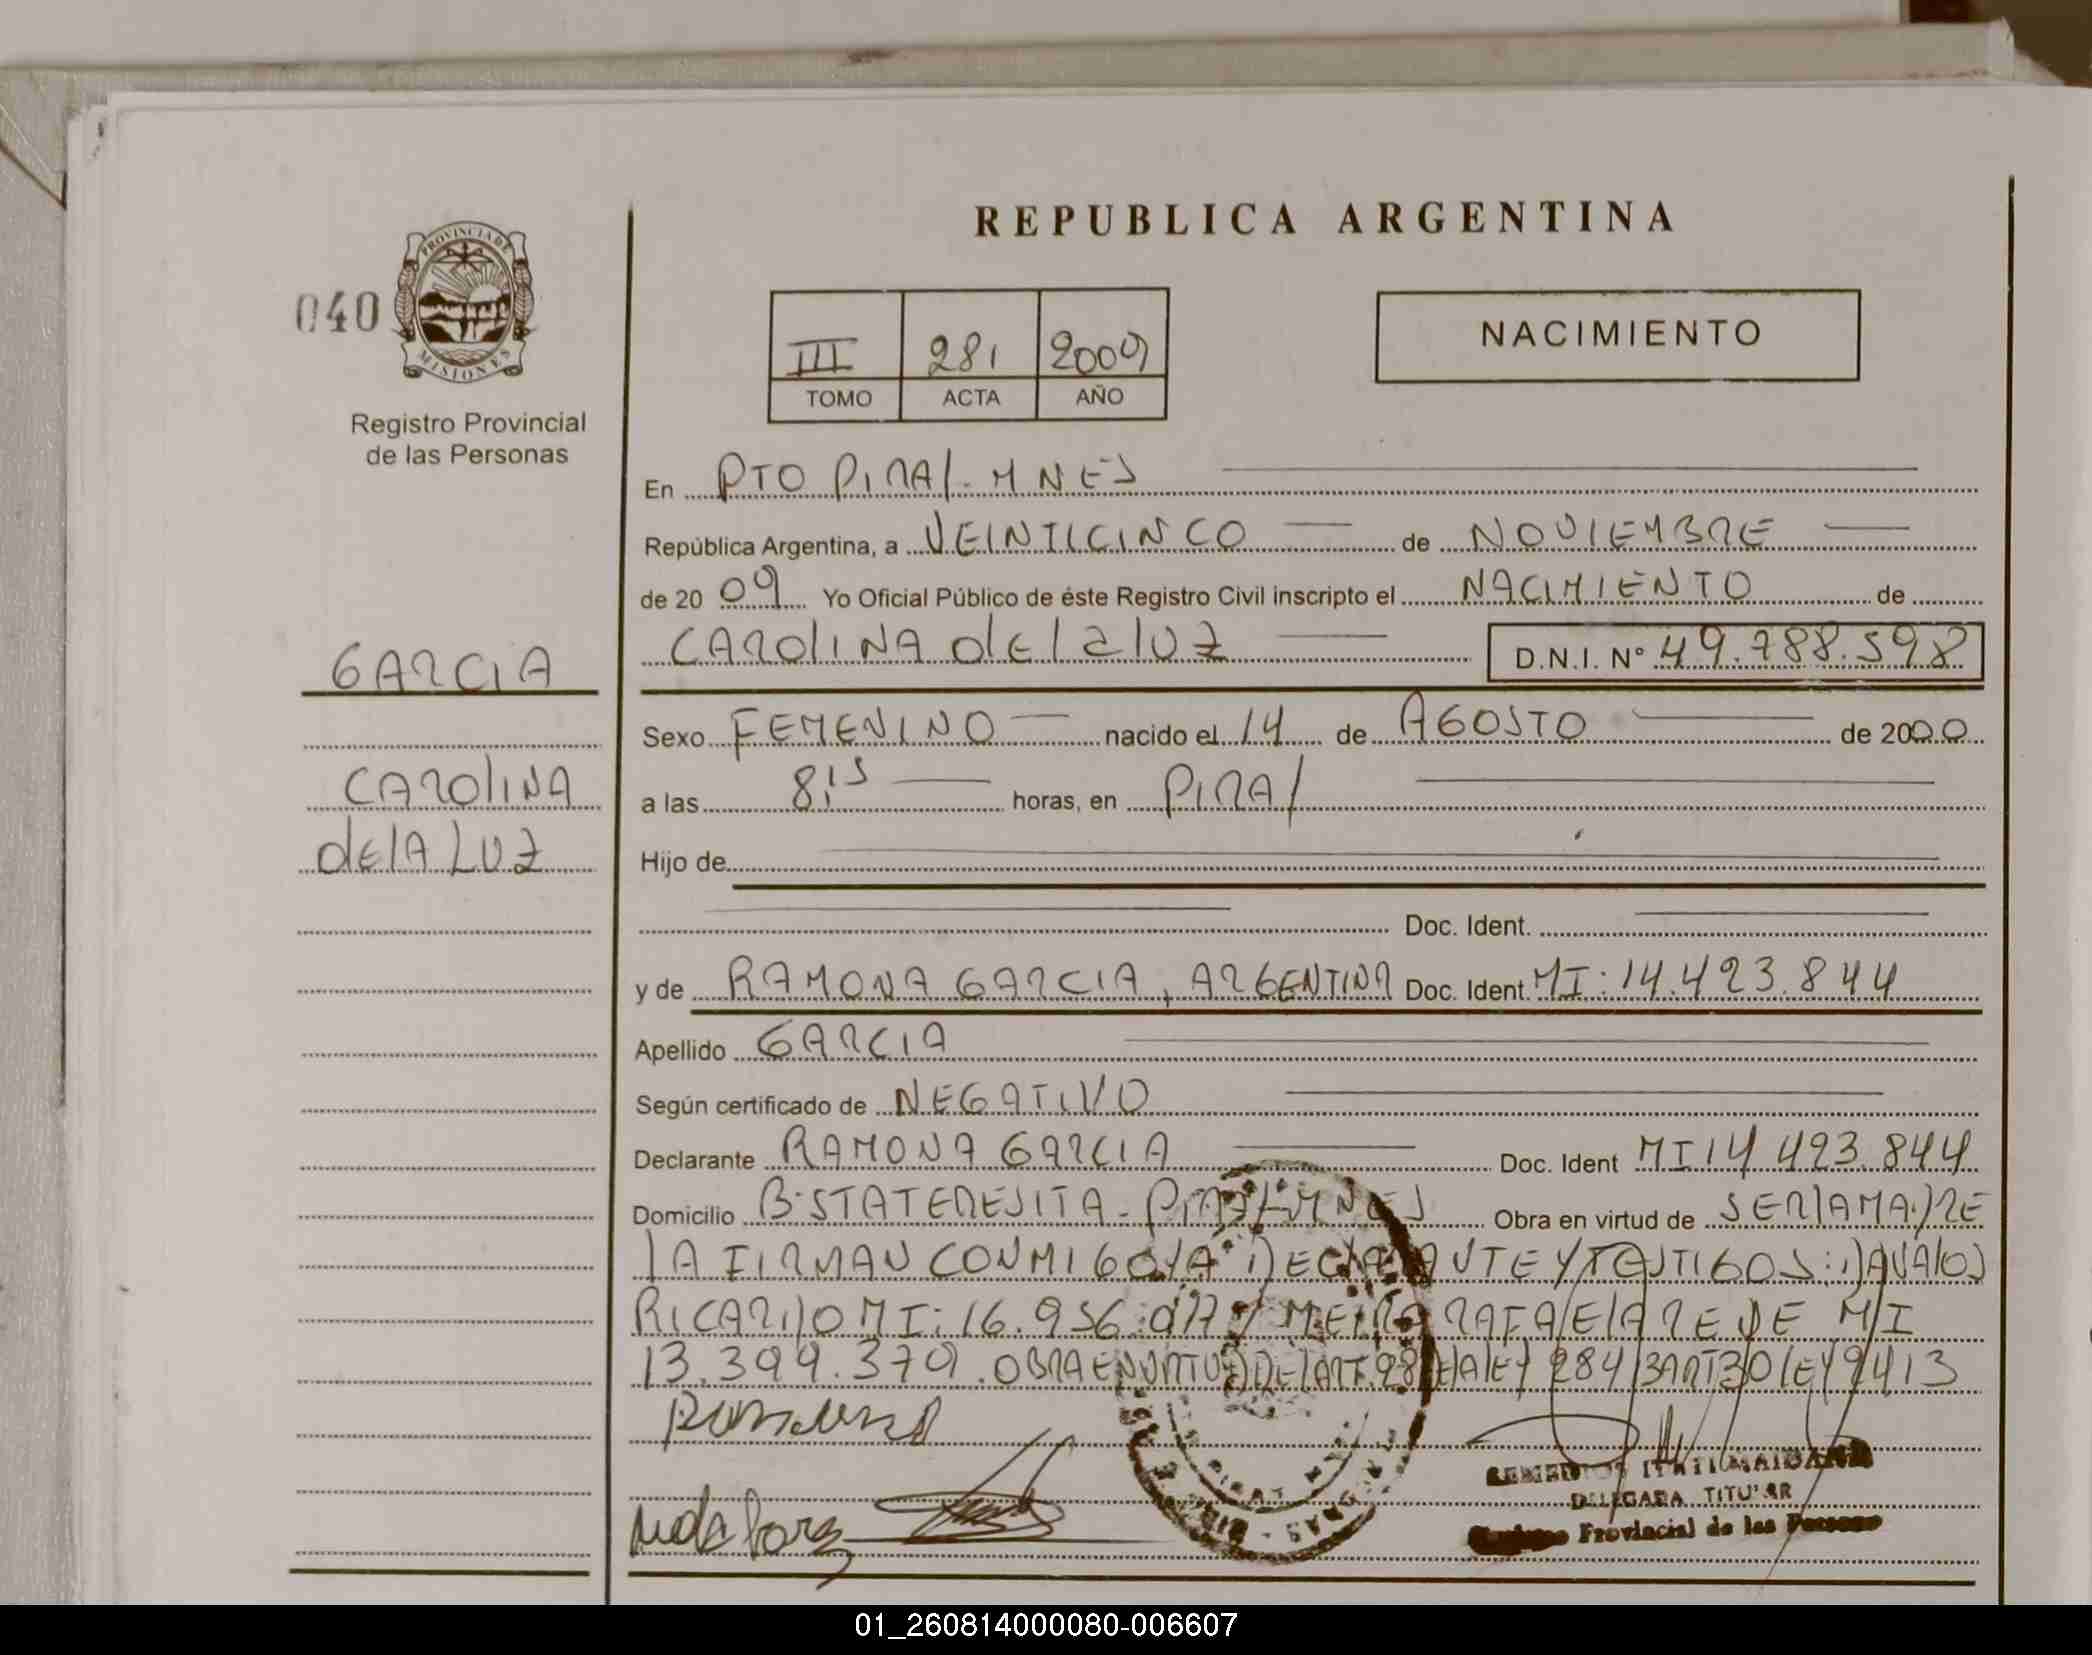 REPUBLICA ARGENTINA
040
PROVINCIA DE
MISIONES
Registro Provincial
de las Personas
III 281 2009
TOMO ACTA AÑO
NACIMIENTO
GARCIA
CAROLINA
DE LA LUZ
En PTO PIRAY - MNES
República Argentina, a VEINTICINCO de NOVIEMBRE
de 2009 Yo Oficial Público de éste Registro Civil inscripto el NACIMIENTO de
CAROLINA DE LA LUZ D.N.I. Nº 49.788.598
Sexo FEMENINO nacido el 14 de AGOSTO de 2000
a las 8:15 horas, en PIRAY
Hijo de
Doc. Ident.
y de RAMONA GARCIA, ARGENTINA Doc. Ident. MI: 14.423.844
Apellido GARCIA
Según certificado de NEGATIVO
Declarante RAMONA GARCIA Doc. Ident MI 14 423.844
Domicilio Bº STA TERESITA - PIRAY MNES Obra en virtud de SER LA MADRE
LA FIRMAN CONMIGO LA DECLARANTE Y TESTIGOS: DAVALOS
RICARDO MI: 16.956. MEIRA RAFAELA REDE MI
13.399.379. OBRA EN VIRTUD DEL ART. 28 LEY 2841 ART 30 LEY 2413
REMEDIOS ITATI MAIDANA
DELEGADA TITULAR
Provincial de las Personas
01_260814000080-006607